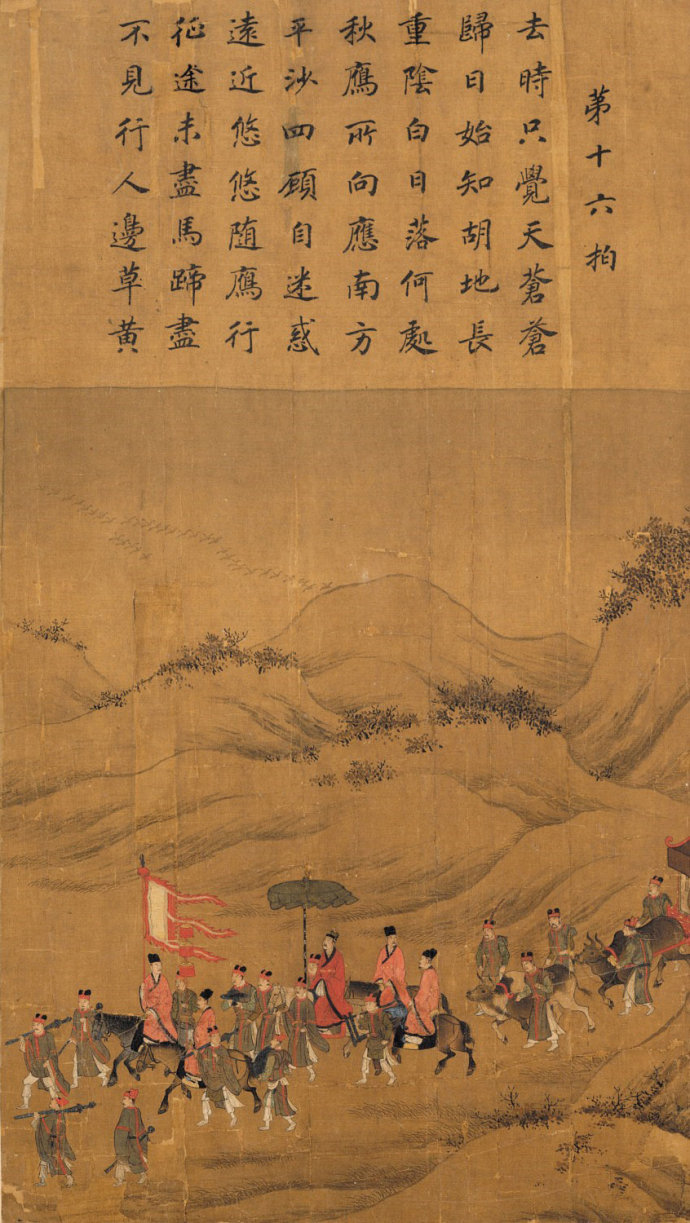 第十六拍
去時只覺天蒼蒼
歸日始知胡地長
重陰白日落何處
秋鴈所向應南方
平沙四顧自迷惑
遠近悠悠随鴈行
征途未盡馬蹄盡
不見行人邊草黃